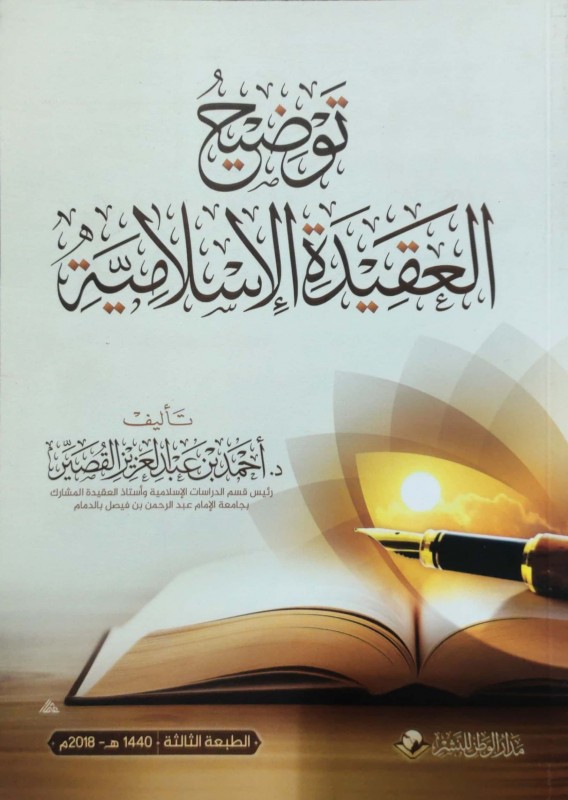 توضيح
العقيدة الإسلامية
تأليف
د. أحمد بن عبد العزيز القصير
رئيس قسم الدراسات الإسلامية وأستاذ العقيدة المشارك
بجامعة الإمام عبد الرحمن بن فيصل بالدمام
مدار الوطن للنشر
الطبعة الثالثة · 1440 هـ - 2018م